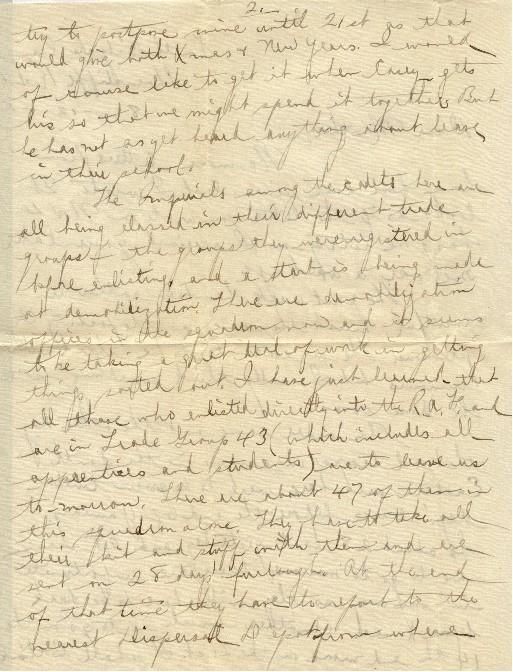 2.
try to postpone mine until 21st as that
would give both Xmas & New Years. I would
of course like to get it when Casey gets
his so that we might spend it together. But
he has not as yet heard anything about leave
in their school.
The Imperials among the cadets here are
all being classed in their different trade
groups - the groups they were registered in
before enlisting, and a start is being made
at demobilization. There are demobilization
offices in the squadron now and it seems
to be taking a great deal of work in getting
things sorted out. I have just learned that
all those who enlisted directly into the R.A.F. and
are in Trade Group 43 (which includes all
apprentices and students) are to leave us
to-morrow. There are about 47 of them in
this squadron alone. They have to take all
their kit and stuff with them and are
sent on 28 days furlough. At the end
of that time they have to report to the
nearest Dispersal where